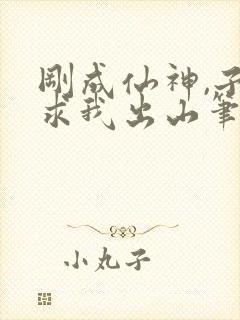 刚成仙神,子
求我出山笔
小丸子